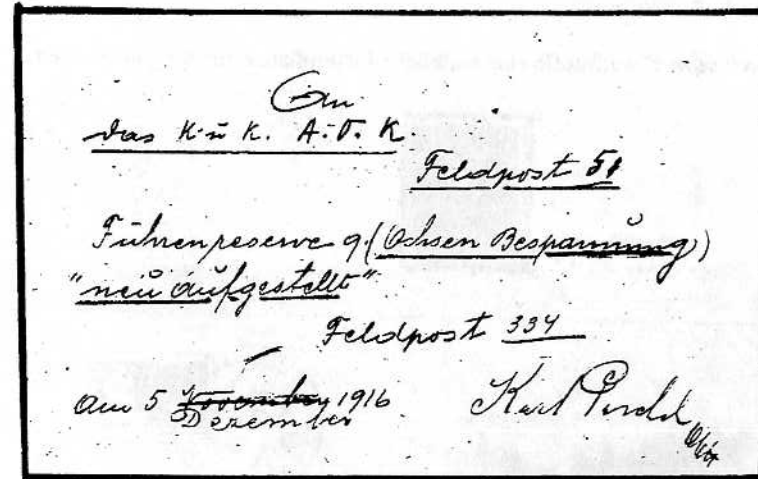 An
das K. u. K. A. O. K
Feldpost 51
Fuhrenreserve 9 (Ochsen Bespannung)
"neu aufgestellt"
Feldpost 334
am 5 November 1916
Dezember
Karl